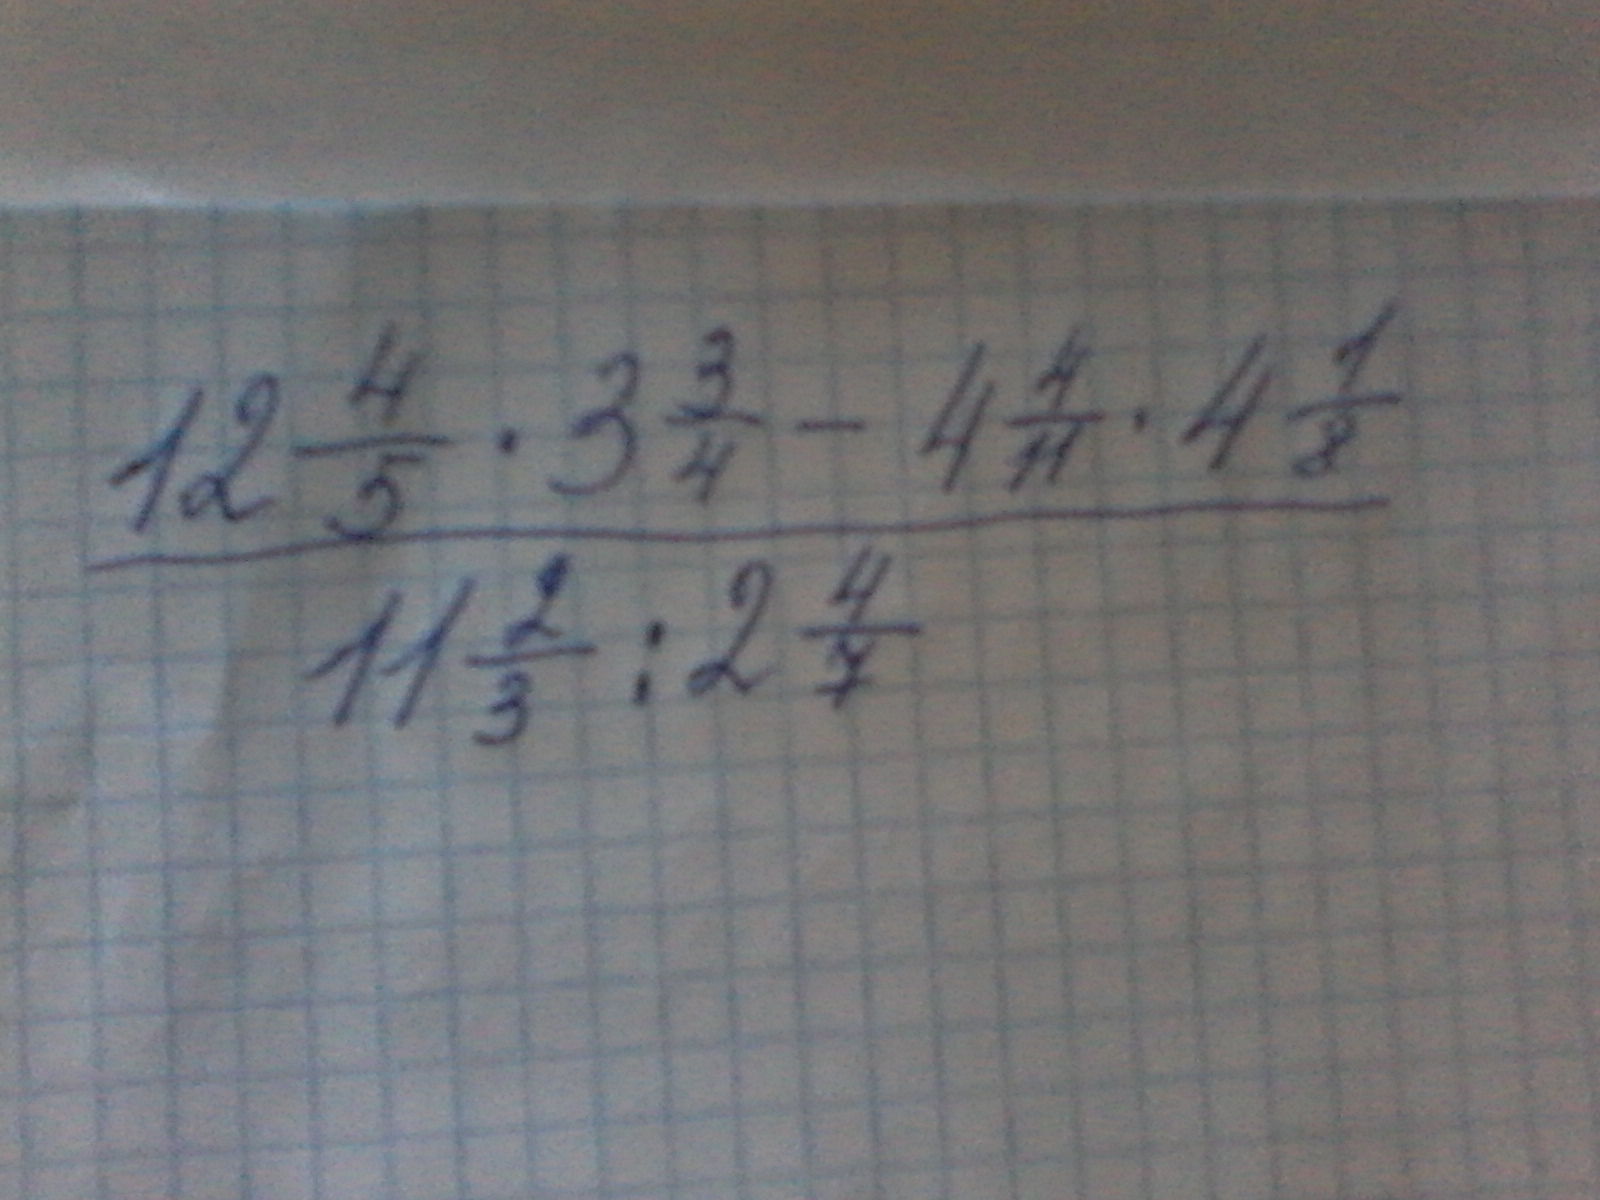 12 4/5 · 3 3/4 − 4 4/11 · 4 1/8
11 2/3 : 2 4/7